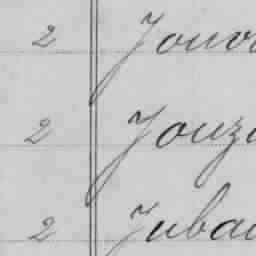 2 Jouv
2 Jouz
2 Jubau